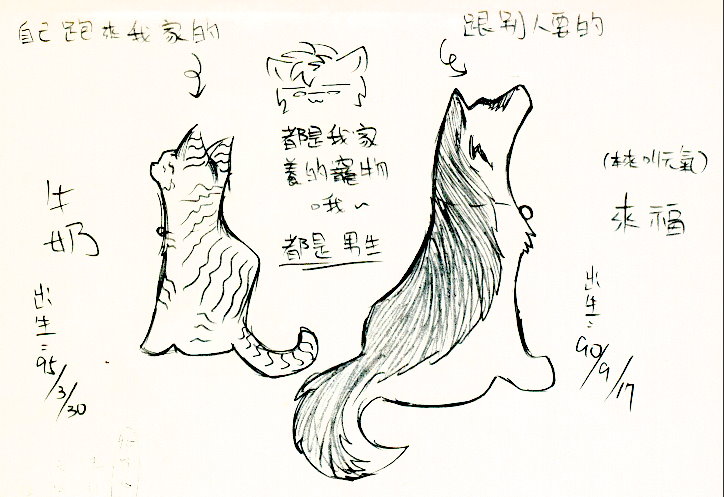 自己跑來我家的
跟別人要的
都是我家
養的寵物
哦~
都是男生
牛奶
出生:95/3/30
(本來叫元氣)
來福
出生:90/9/17